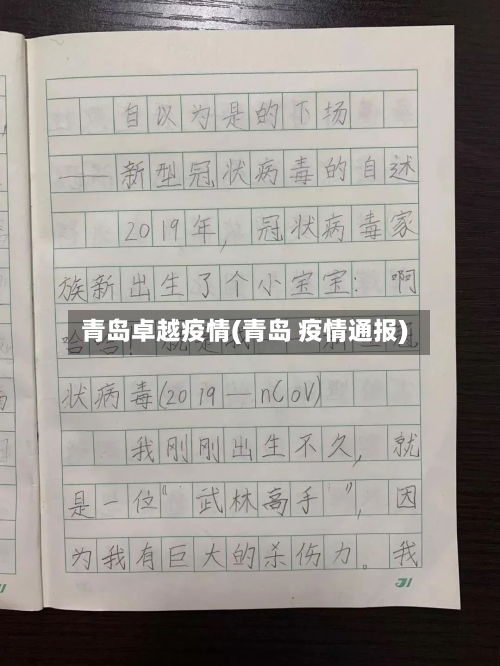 自以为是的下场
——新型冠状病毒的自述
2019年，冠状病毒家
族新出生了个小宝宝：啊
青岛卓越疫情(青岛 疫情通报)
状病毒(2019—nCoV)
我刚刚出生不久，就
是一位“武林高手”，因
为我有巨大的杀伤力。我